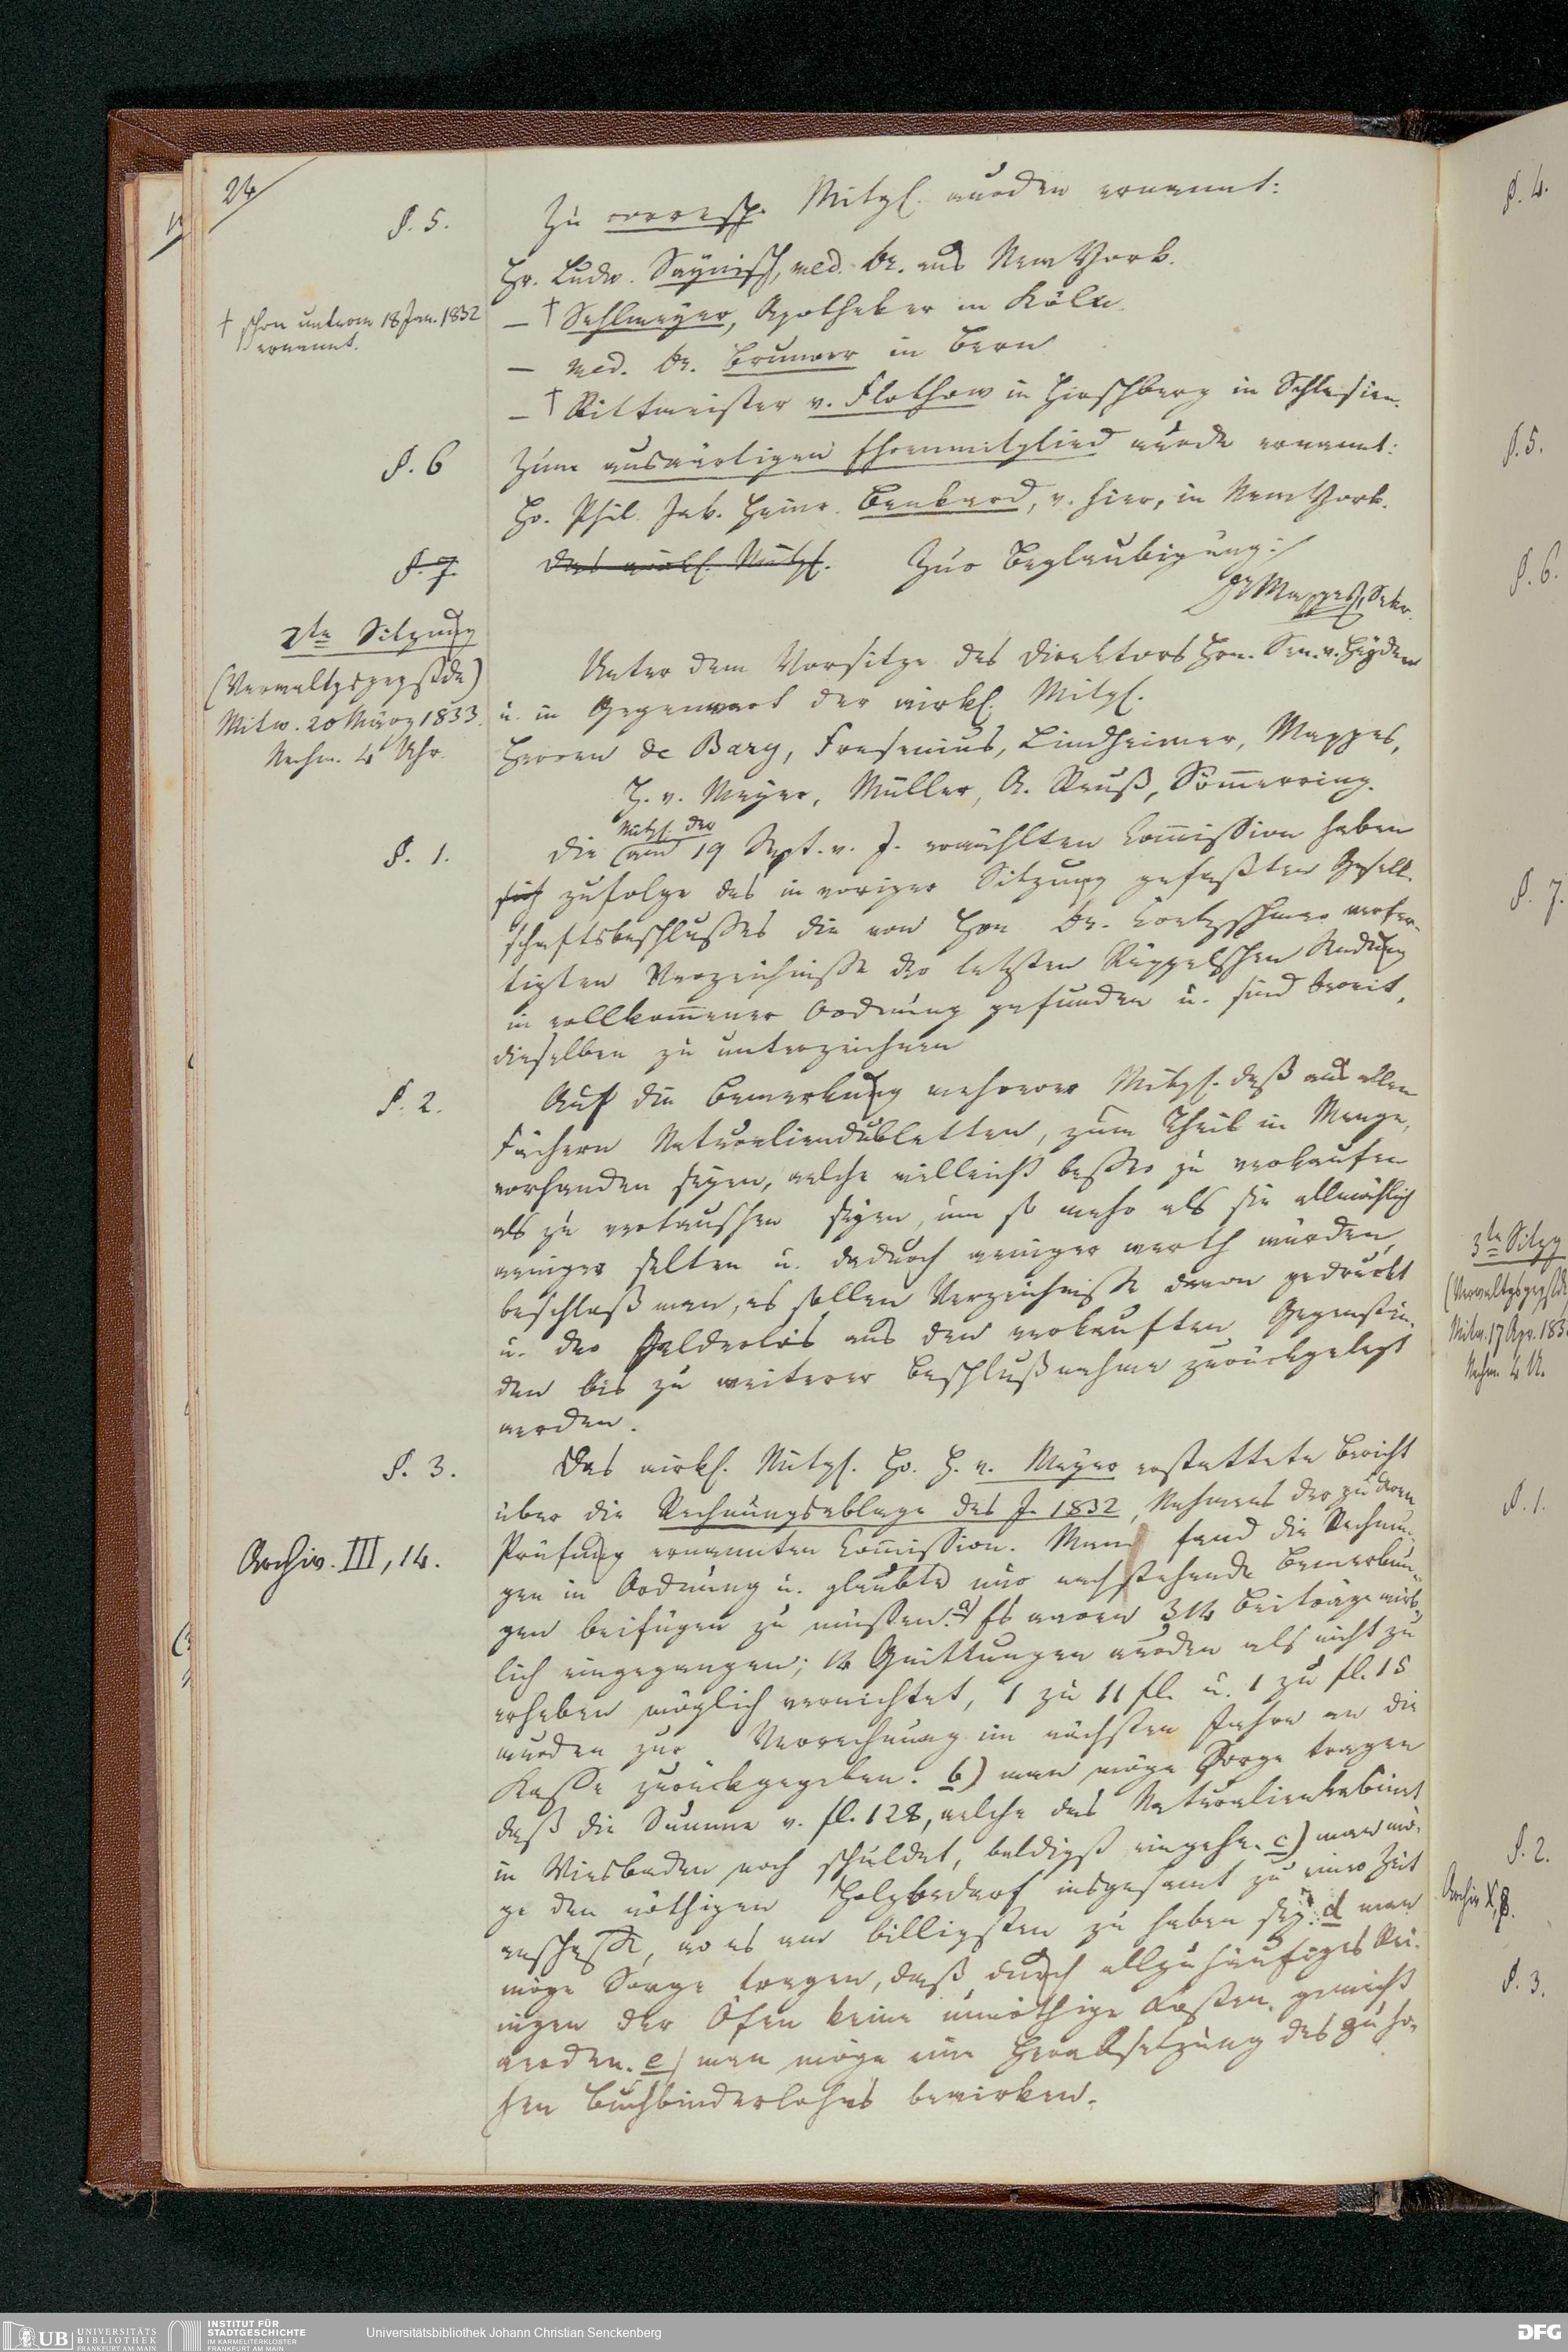 24
§. 5.
Zu corresp. Mitgl. wurden ernannt:
Hr. Ludw. Saynisch, med. Dr. aus New York.
† schon unterm 18 Jan. 1832
ernannt.
— † Sehlmeyer, Apotheker in Köln.
— med. Dr. Brunner in Bern
— † Rittmeister v. Flothow in Hirschberg in Schlesien.
§. 6
Zum auswärtigen Ehrenmitglied wurde ernannt:
Hr. Phil. Jak. Heinr. Benkard, v. hier, in New York.
§. 7.
Das wirkl. Mitgl. Zur Beglaubigung:
Dr Mappes, Sekr.
2te Sitzung
(Verwaltgsgegstde)
Mitw. 20 März 1833.
Nachm. 4 Uhr.
Unter dem Vorsitze des Direktors Hrn. Sen. v. Heyden
u. in Gegenwart der wirkl. Mitgl.
Herren de Bary, Fresenius, Lindheimer, Mappes,
H. v. Meyer, Müller, A. Reuß, Sömmerring.
§. 1.
Mitgl. der
Die am 19 Sept. v. J. erwählten Commission haben
sich zufolge des in voriger Sitzung gefaßten Gesell-
schaftsbeschlußes die von Hrn Dr. Cretzschmar verfer-
tigten Verzeichniße der letzten Rüppelschen Sendung
in vollkommener Ordnung gefunden u. sind bereit,
dieselben zu unterzeichnen
§. 2.
Auf die Bemerkung mehrerer Mitgl. daß aus allen
Fächern Naturaliendubletten, zum Theil in Menge,
vorhanden seyen, welche vielleicht beßer zu verkaufen
als zu vertauschen seyen, um so mehr als sie allmählig
weniger selten u. dadurch weniger werth würden,
beschloß man, es sollen Verzeichniße davon gedruckt
u. der Gelderlös aus den verkauften Gegenstän-
den bis zu weiterer Beschlußnahme zurückgelegt
werden.
§. 3.
Das wirkl. Mitgl. Hr. H. v. Meyer erstattete Bericht
über die Rechnungsablage des J. 1832, Nahmens der zu deren
Archiv. III, 14.
Prüfung ernannten Commission. Man fand die Rechnun-
gen in Ordnung u. glaubte nur nachstehende Bemerkun-
gen beifügen zu müßen. a) Es waren 314 Beiträge wirk-
lich eingegangen; 14 Quittungen wurden als nicht zu
erheben möglich vernichtet, 1 zu 11 fl. u. 1 zu fl. 15
wurden zur Verrechnung im nächsten Jahre an die
Kaße zurückgegeben. b) man möge Sorge tragen
daß die Summe v. fl. 128, welche das Naturalienkabinet
in Wiesbaden noch schuldet, baldigst eingehe. c) man mö-
ge den nöthigen Holzbedarf insgesamt zu einer Zeit
anschaffe, wo es am billigsten zu haben sey. d man
möge Sorge tragen, daß durch allzuhäufiges Rei-
nigen der Öfen keine unnöthige Kosten gemacht
werden. e) man möge eine Herabsetzung des zu ho-
hen Buchbinderlohns bewirken.
§. 4.
§. 5.
§. 6.
§. 7.
3te Sitzg
(Verwaltgsgegstde
Mitw. 17 Apr. 183
Nachm. 4 U.
§. 1.
§. 2.
Archiv X, 8.
§. 3.
UB UNIVERSITÄTS
BIBLIOTHEK
FRANKFURT AM MAIN
INSTITUT FÜR
STADTGESCHICHTE
IM KARMELITERKLOSTER
FRANKFURT AM MAIN
Universitätsbibliothek Johann Christian Senckenberg
DFG